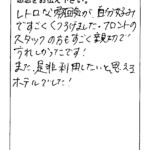 レトロな雰囲気が、自分好みで
すごくくつろげました。フロントの
スタッフの方もすごく親切で
うれしかったです!
また、是非利用したいと思える
ホテルでした!